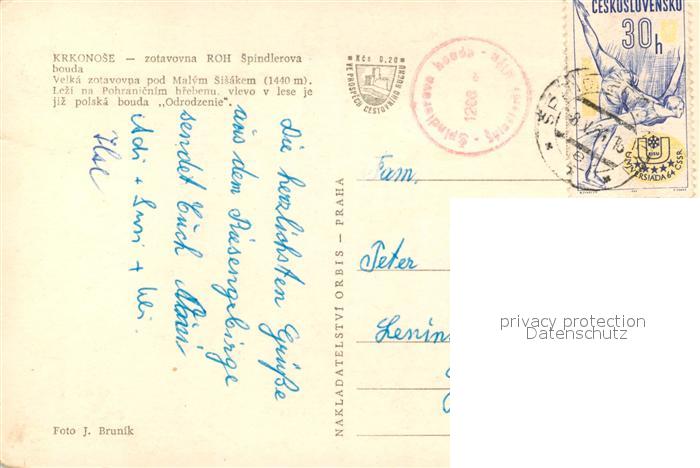 KRKONOŠE — zotavovna ROH Špindlerova
bouda
Velká zotavovna pod Malým Šišákem (1440 m).
Leží na Pohraničním hřebenu, vlevo v lese je
již polská bouda „Odrodzenie".
Kčs 0,20
VE PROSPĚCH CESTOVNÍHO RUCHU
Špindlerova bouda
1208
ČESKOSLOVENSKO
30h
UNIVERSIÁDA 64 ČSSR
Die herzlichsten Grüße
aus dem Riesengebirge
sendet Euch
Adi + Susi +
Ilse
NAKLADATELSTVÍ ORBIS — PRAHA
Fam.
Peter
Lenin
privacy protection
Datenschutz
Foto J. Bruník